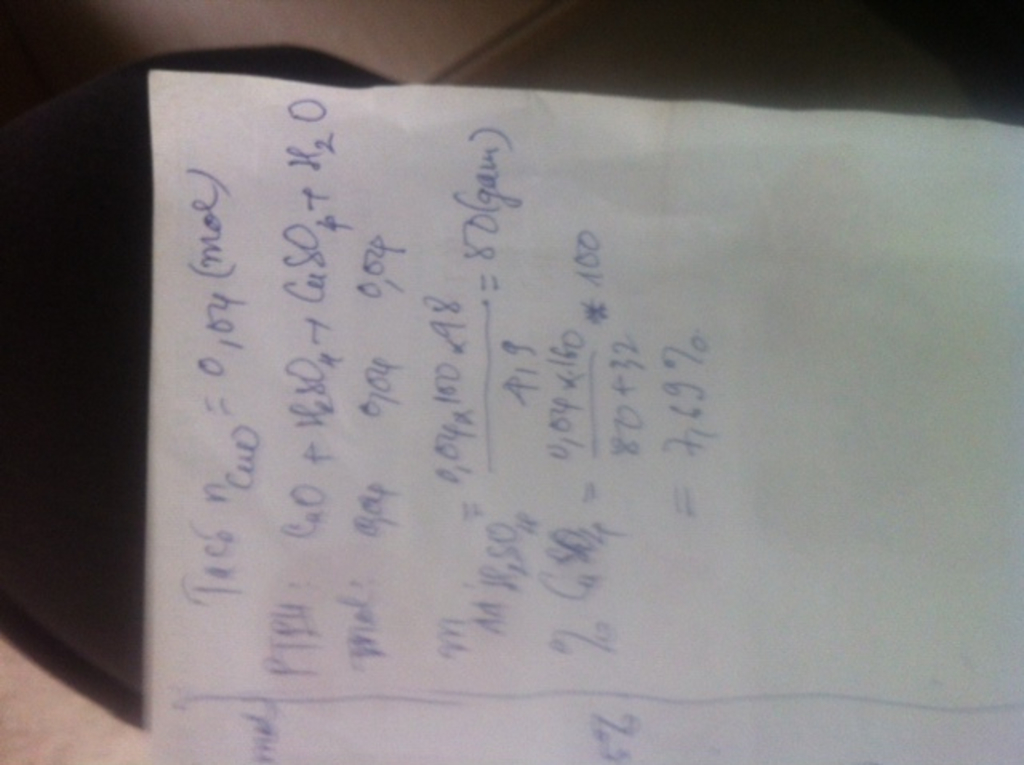 Ta có n CuO = 0,04 (mol)
PTPƯ: CuO + H2SO4 → CuSO4 + H2O
mol: 0,04 0,04 0,04
m dd H2SO4 = 0,04 x 100 x 98 / 4,9 = 80 (gam)
% CuSO4 = 0,04 x 160 / 80 + 3,2 * 100
= 7,69 %
mol
5%